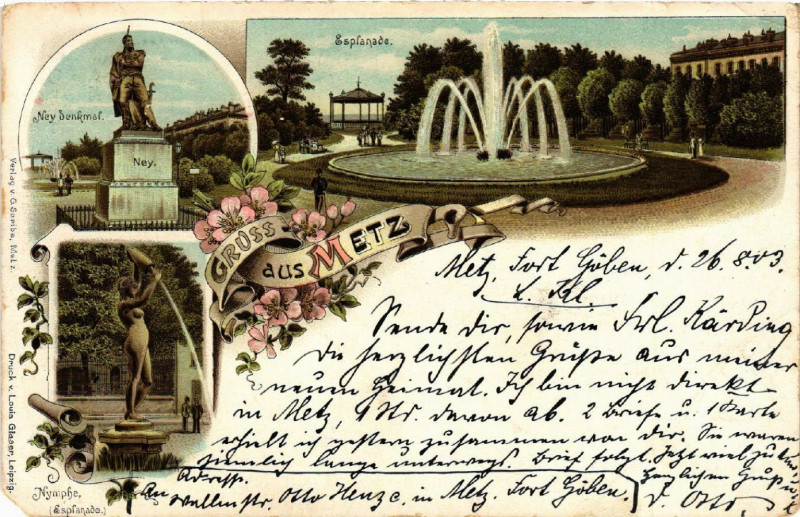 Esplanade.
Ney Denkmal.
Ney.
GRUSS
aus METZ
Nymphe,
(Esplanade.)
Verlag v. G. Scriba, Metz.
Druck v. Louis Glaser, Leipzig.
Metz, Fort Göben, d. 26.8.03.
L. Kl.
Sende dir, sowie Frl. Kärding
die herzlichsten Grüße aus meiner
neuen Heimat. Ich bin nicht direkt
in Metz, 1 Str. davon ab. 2 Briefe u. 1 Karte
erhielt ich gestern zusammen von dir. Sie waren
ziemlich lange unterwegs. Brief folgt. Jetzt viel zu tun
Herzlichen Gruß
d. Otto.
Adresse.
An
Otto Henze. in Metz. Fort Göben.